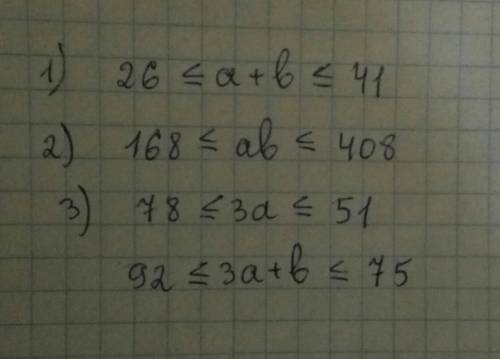 1) 26 ≤ a + b ≤ 41
2) 168 ≤ ab ≤ 408
3) 78 ≤ 3a ≤ 51
92 ≤ 3a + b ≤ 75